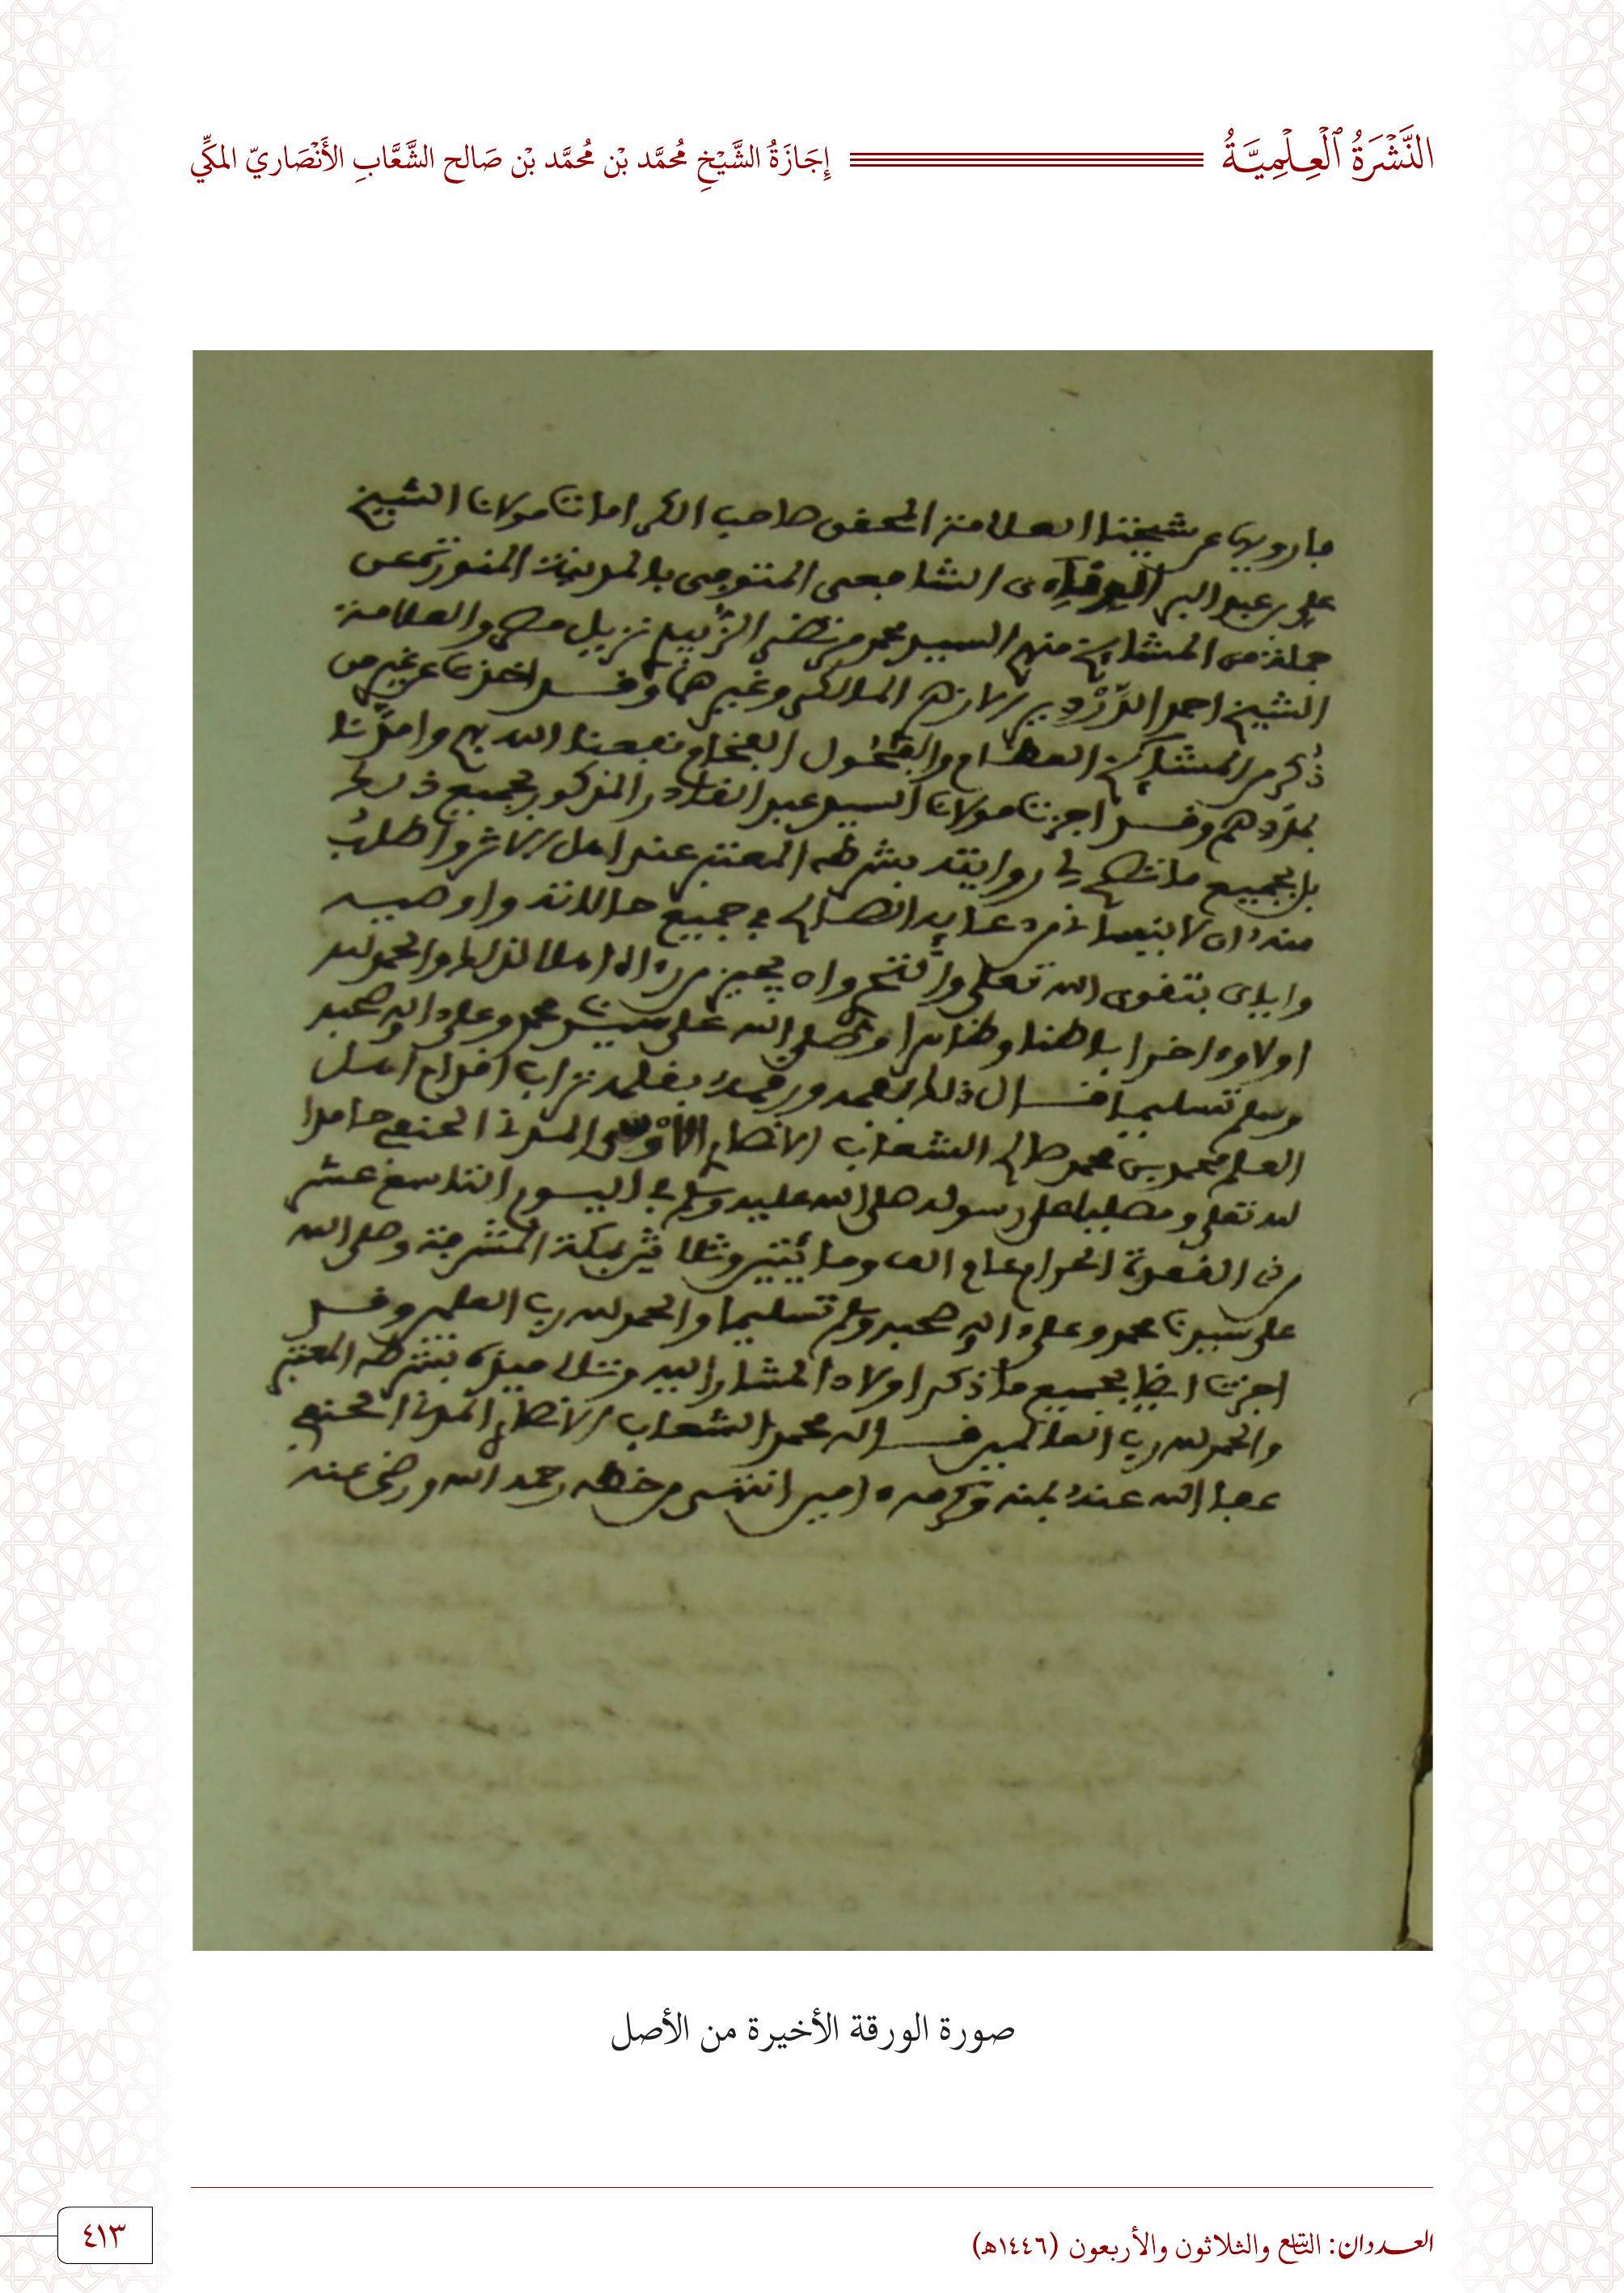 النَّشْرَةُ ٱلْعِلْمِيَّةُ
إِجَازَةُ الشَّيْخِ مُحَمَّد بْن مُحَمَّد بْن صَالح الشَّعَّابِ الأَنْصَاريّ المكِّي
بارويها عن شيخنا العلامة المحقق صاحب الكرامات مولانا الشيخ
علي بن عبد البر الشافعي المتوفى بالمدينة المنورة عن
جملة من المشايخ منهم السيد محمد مرتضى الزبيدي نزيل مصر والعلامة
الشيخ احمد الدَّرْدِير المالكي وغيرهما وقد اخذنا عن غير من
ذُكر من المشايخ العظام والفحول الفخام نفعنا الله بهم وامدَّنا
بمددهم وقد اجزنا مولانا السيد عبد القادر المذكور بجميع ذلك
بل بجميع ما تصح لي روايته بشرطه المعتبر عند اهل الاثر واطلبُ
منه ان لا ينساني من دعائه الصالح في جميع حالاته واوصيه
واياي بتقوى الله تعلى وان يجيز من راه اهلا لذلك والحمد لله
اولا واخرا باطنا وظاهرا وصلى الله على سيدنا محمد وعلى اله وصحبه
وسلم تسليما قال ذلك بفمه ورقمه بقلمه تراب اقدام اهل
العلم محمد بن محمد صالح الشعاب الانصاري المدني الحنفي حامدا
لله تعلى ومصليا على رسوله صلى الله عليه وسلم في اليوم التاسع عشر
من ذي القعدة الحرام عام الف ومائتين وثلاثين بمكة المشرفة وصلى الله
على سيدنا محمد وعلى اله وصحبه وسلم تسليما والحمد لله رب العلمين وقد
اجزنا ايضا بجميع ما ذكر اولاد المشار اليه وتلاميذه بشرطه المعتبر
والحمد لله رب العالمين قاله محمد الشعاب الانصاري المدني الحنفي
عفا الله عنه بمنه وكرمه امين انتهى من خطه رحمه الله ورضي عنه
صورة الورقة الأخيرة من الأصل
العددان: التاسع والثلاثون والأربعون (١٤٤٦هـ)
٤١٣